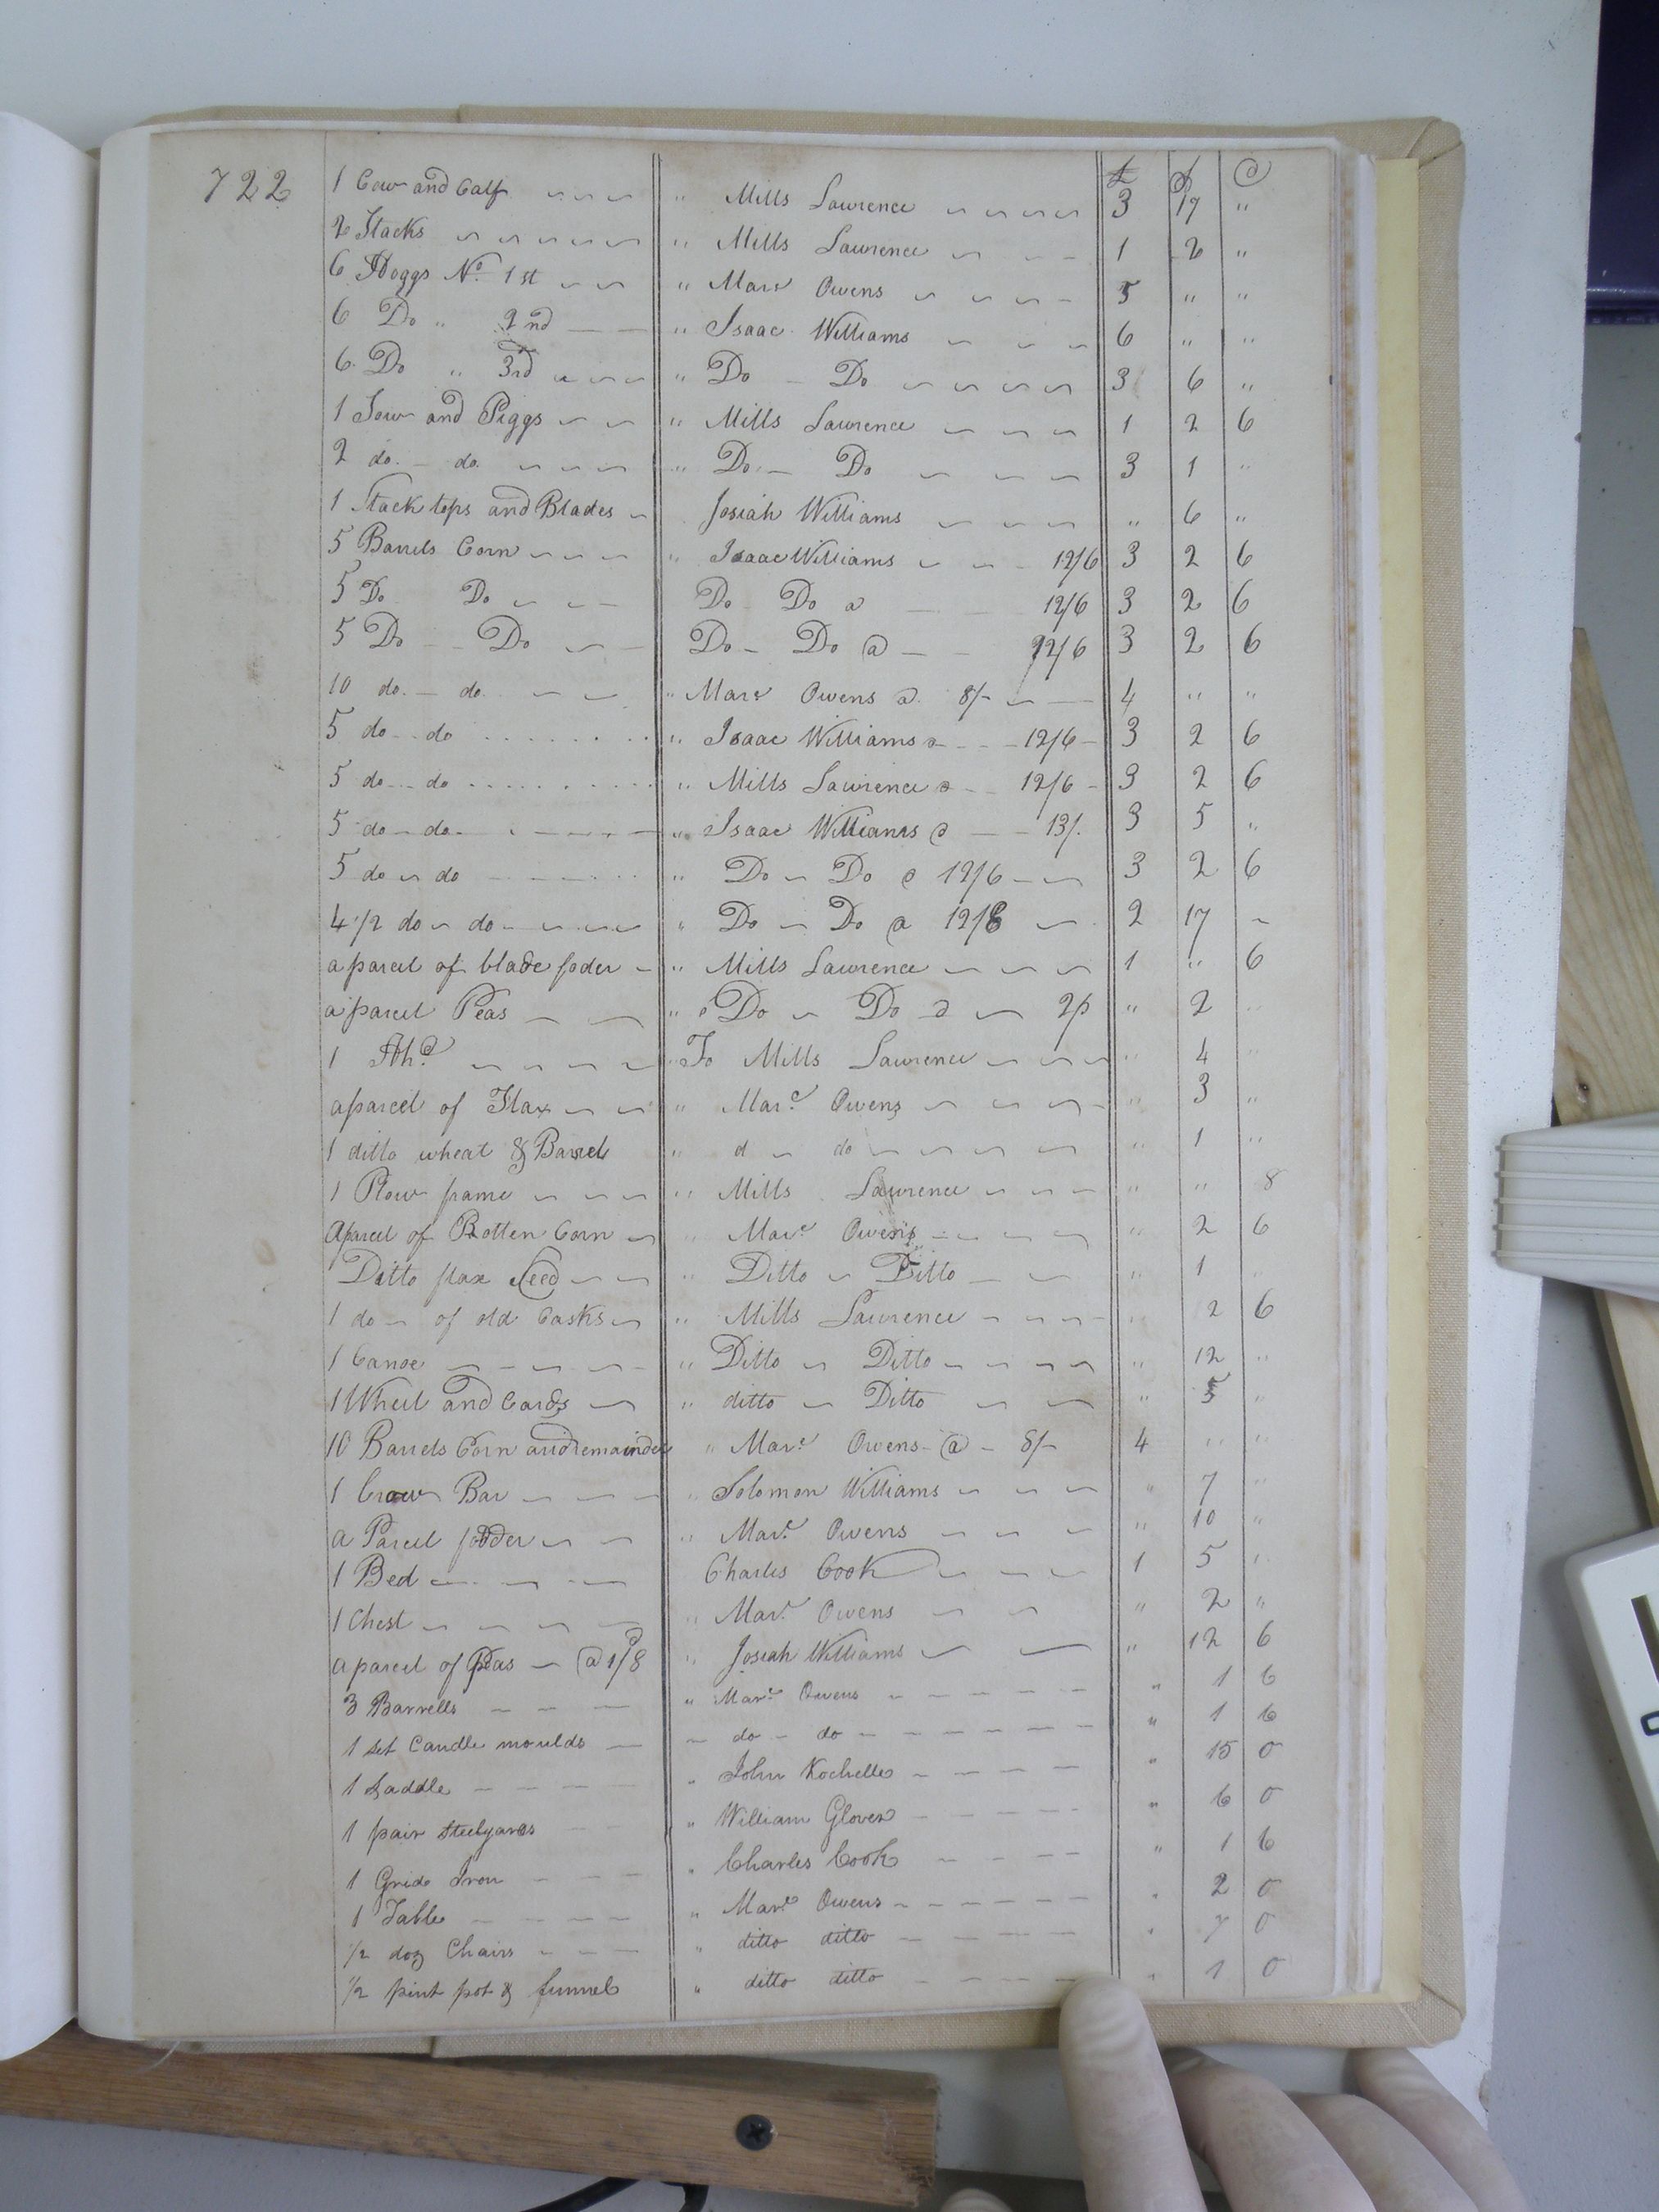 722
£ S D
1 Cow and Calf " Mills Lawrence 3 17 "
2 Stacks " Mills Lawrence 1 2 "
6 Hoggs No. 1st " Mare Owens 5 " "
6 Do " 2nd " Isaac Williams 6 " "
6 Do " 3rd " Do Do 3 6 "
1 Sow and Piggs " Mills Lawrence 1 2 6
2 do. do. " Do. Do 3 1 "
1 Stack tops and Blades Josiah Williams " 6 "
5 Barrels Corn " Isaac Williams 12/6 3 2 6
5 Do Do Do Do a 12/6 3 2 6
5 Do Do Do Do @ 12/6 3 2 6
10 do. do. " Mare Owens @ 8/- 4 " "
5 do do " Isaac Williams @ 12/6 3 2 6
5 do do " Mills Lawrence @ 12/6 3 2 6
5 do do " Isaac Williams @ 13/. 3 5 "
5 do do " Do Do @ 12/6 3 2 6
4 1/2 do do " Do Do @ 12/8 2 17 ~
a parcel of blade foder " Mills Lawrence 1 " 6
a parcel Peas " Do Do @ 2p " 2 "
1 Hhd " To Mills Lawrence " 4 "
a parcel of Flax " Mare Owens " 3 "
1 ditto wheat & Barrel " d do " 1 "
1 Plow frame " Mills Lawrence " " 8
a parcel of Rotten Corn " Mare Owens " 2 6
Ditto flax Seed " Ditto Ditto " 1 "
1 do of old Casks " Mills Lawrence " 2 6
1 Canoe " Ditto Ditto " 12 "
1 Wheel and Cards " ditto Ditto " 5 "
10 Barrels Corn and remainder " Mare Owens @ 8/- 4 " "
1 Crow Bar " Solomon Williams " 7 "
a Parcel fodder " Mare Owens " 10 "
1 Bed Charles Cook 1 5 "
1 Chest " Mare Owens " 2 "
a parcel of Peas @ 1/8 " Josiah Williams " 12 6
3 Barrells " Mare Owens " 1 6
1 set Candle moulds do do " 1 6
1 Saddle " John Rochelle " 15 0
1 pair Steelyards " William Glover " 6 0
1 Grid Iron " Charles Cook " 1 6
1 Table " Mare Owens " 2 0
1/2 doz Chairs " ditto ditto " 7 0
1/2 pint pot & funnel " ditto ditto " 1 0